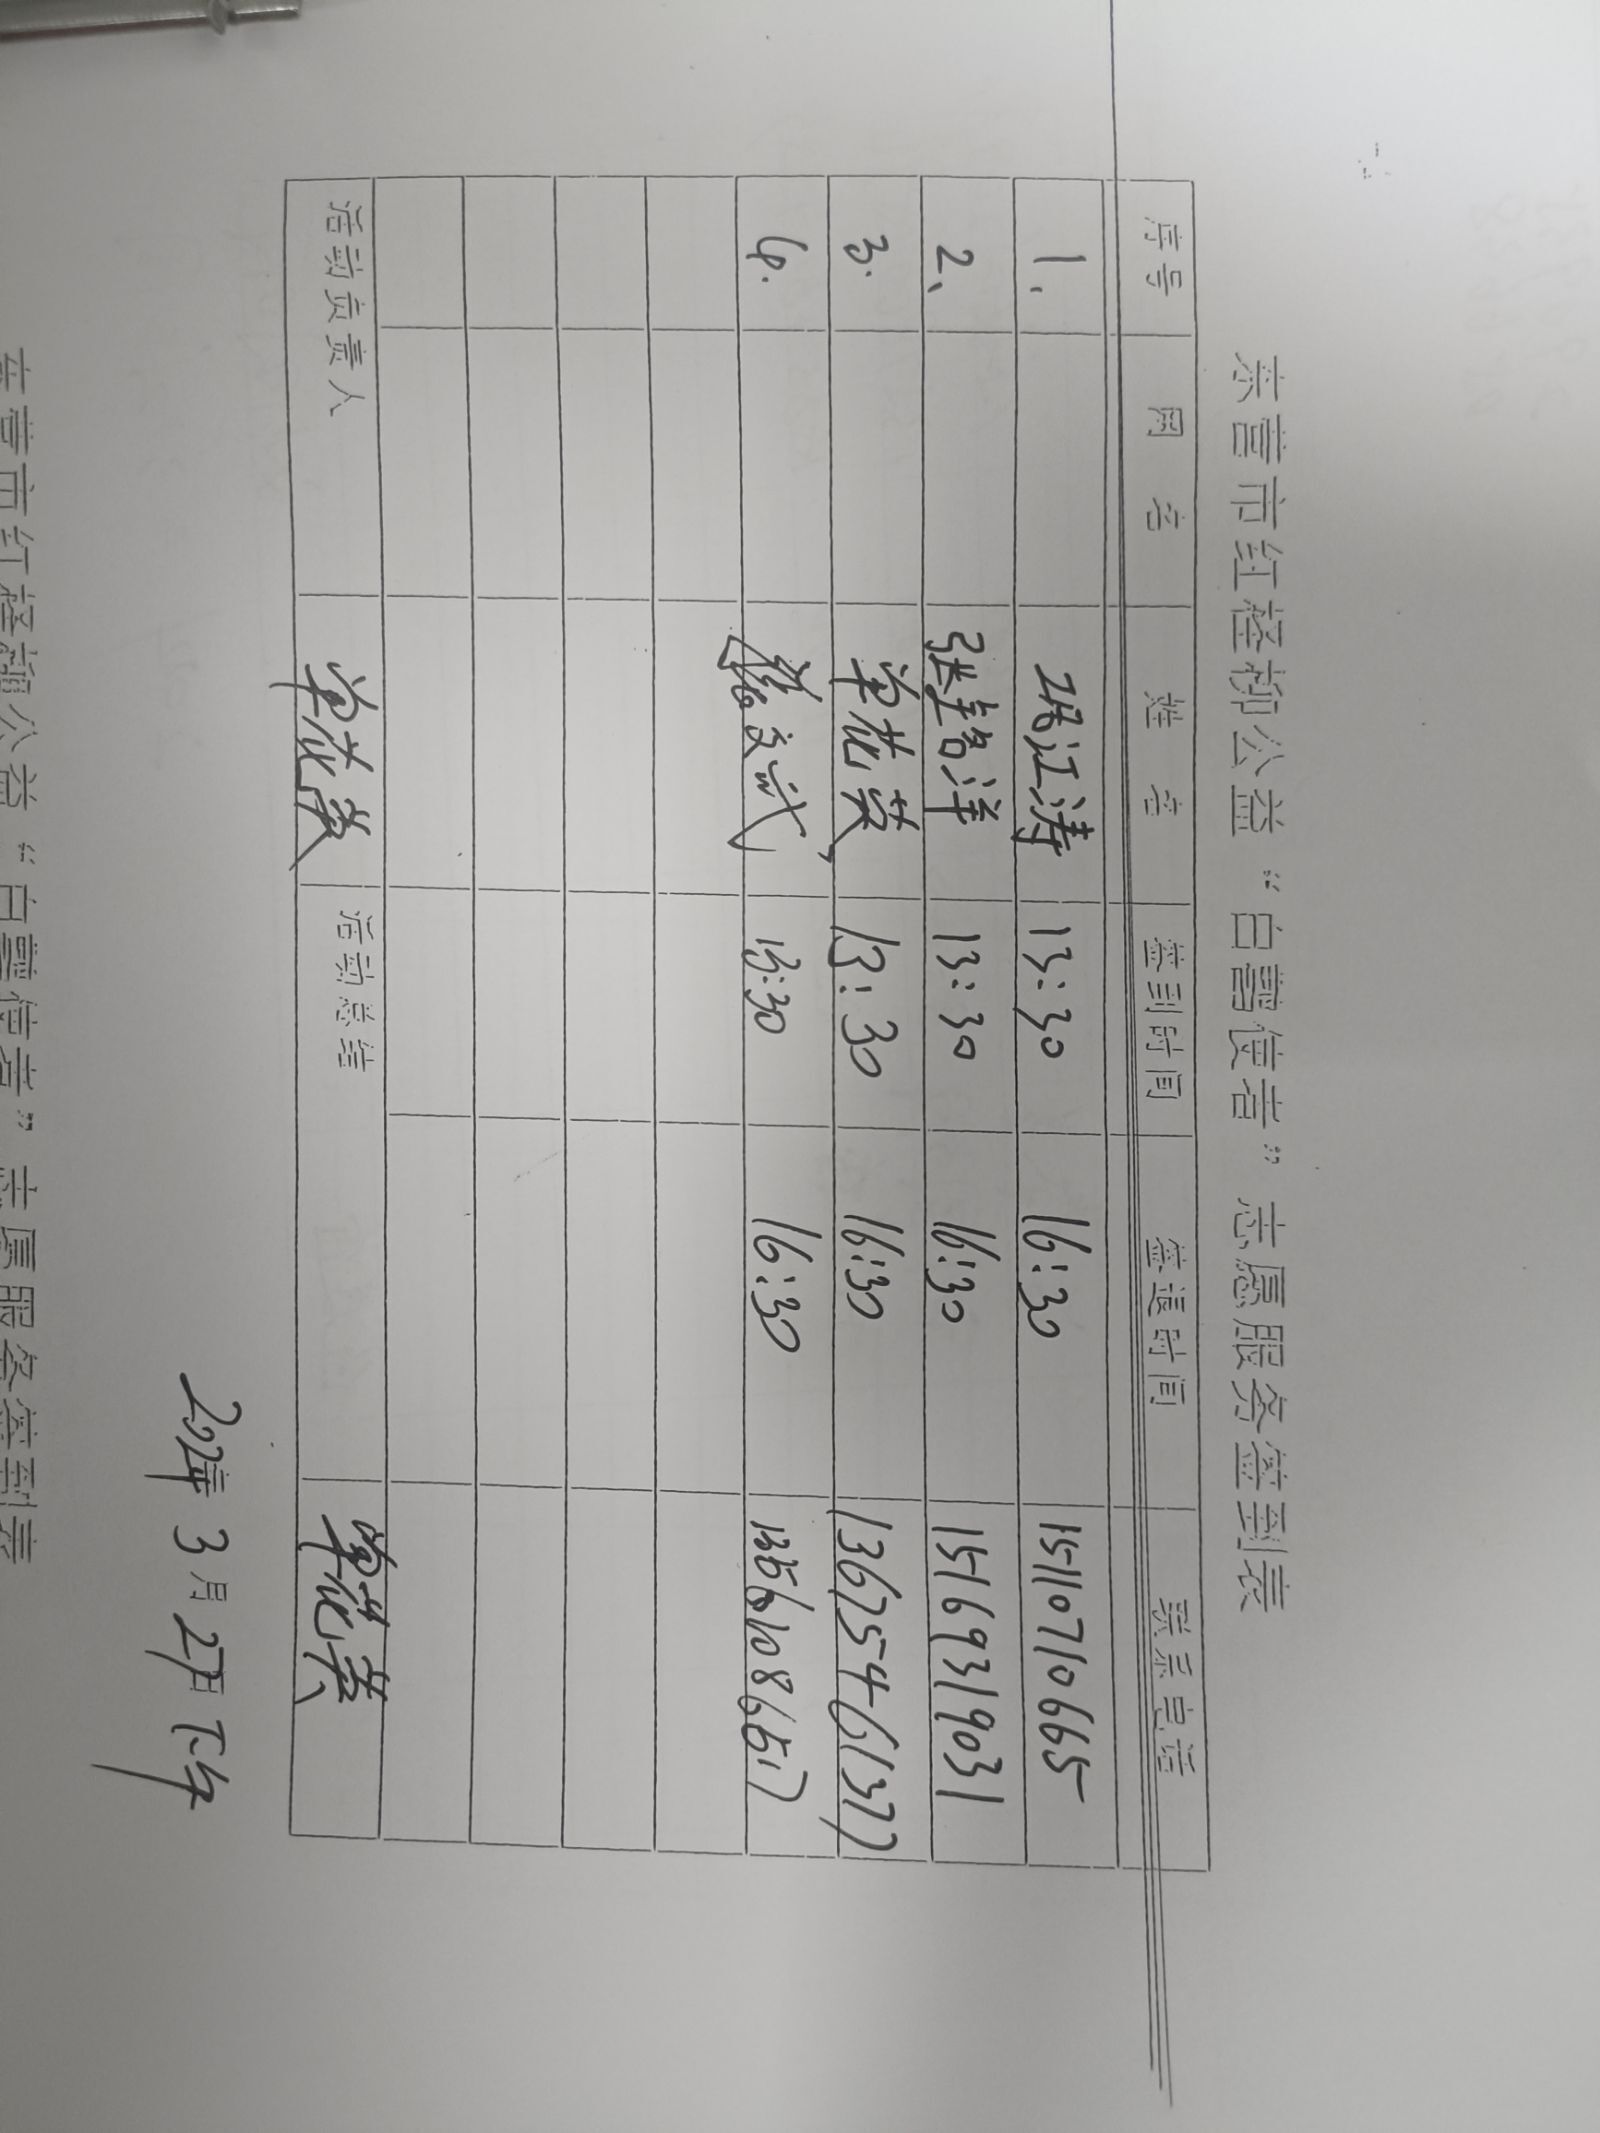 东营市红柽柳公益“白鹭使者”志愿服务签到表
序号 网名 姓名 签到时间 签退时间 联系电话
1、 江涛 13:30 16:30 15110710665
2、 张喆洋 13:30 16:30 15169319031
3. 单花英 13:30 16:30 13675461377
4. 文武 13:30 16:30
活动负责人 单花英 活动总结 单花英
3月27日下午
东营市红柽柳公益“白鹭使者”志愿服务签到表